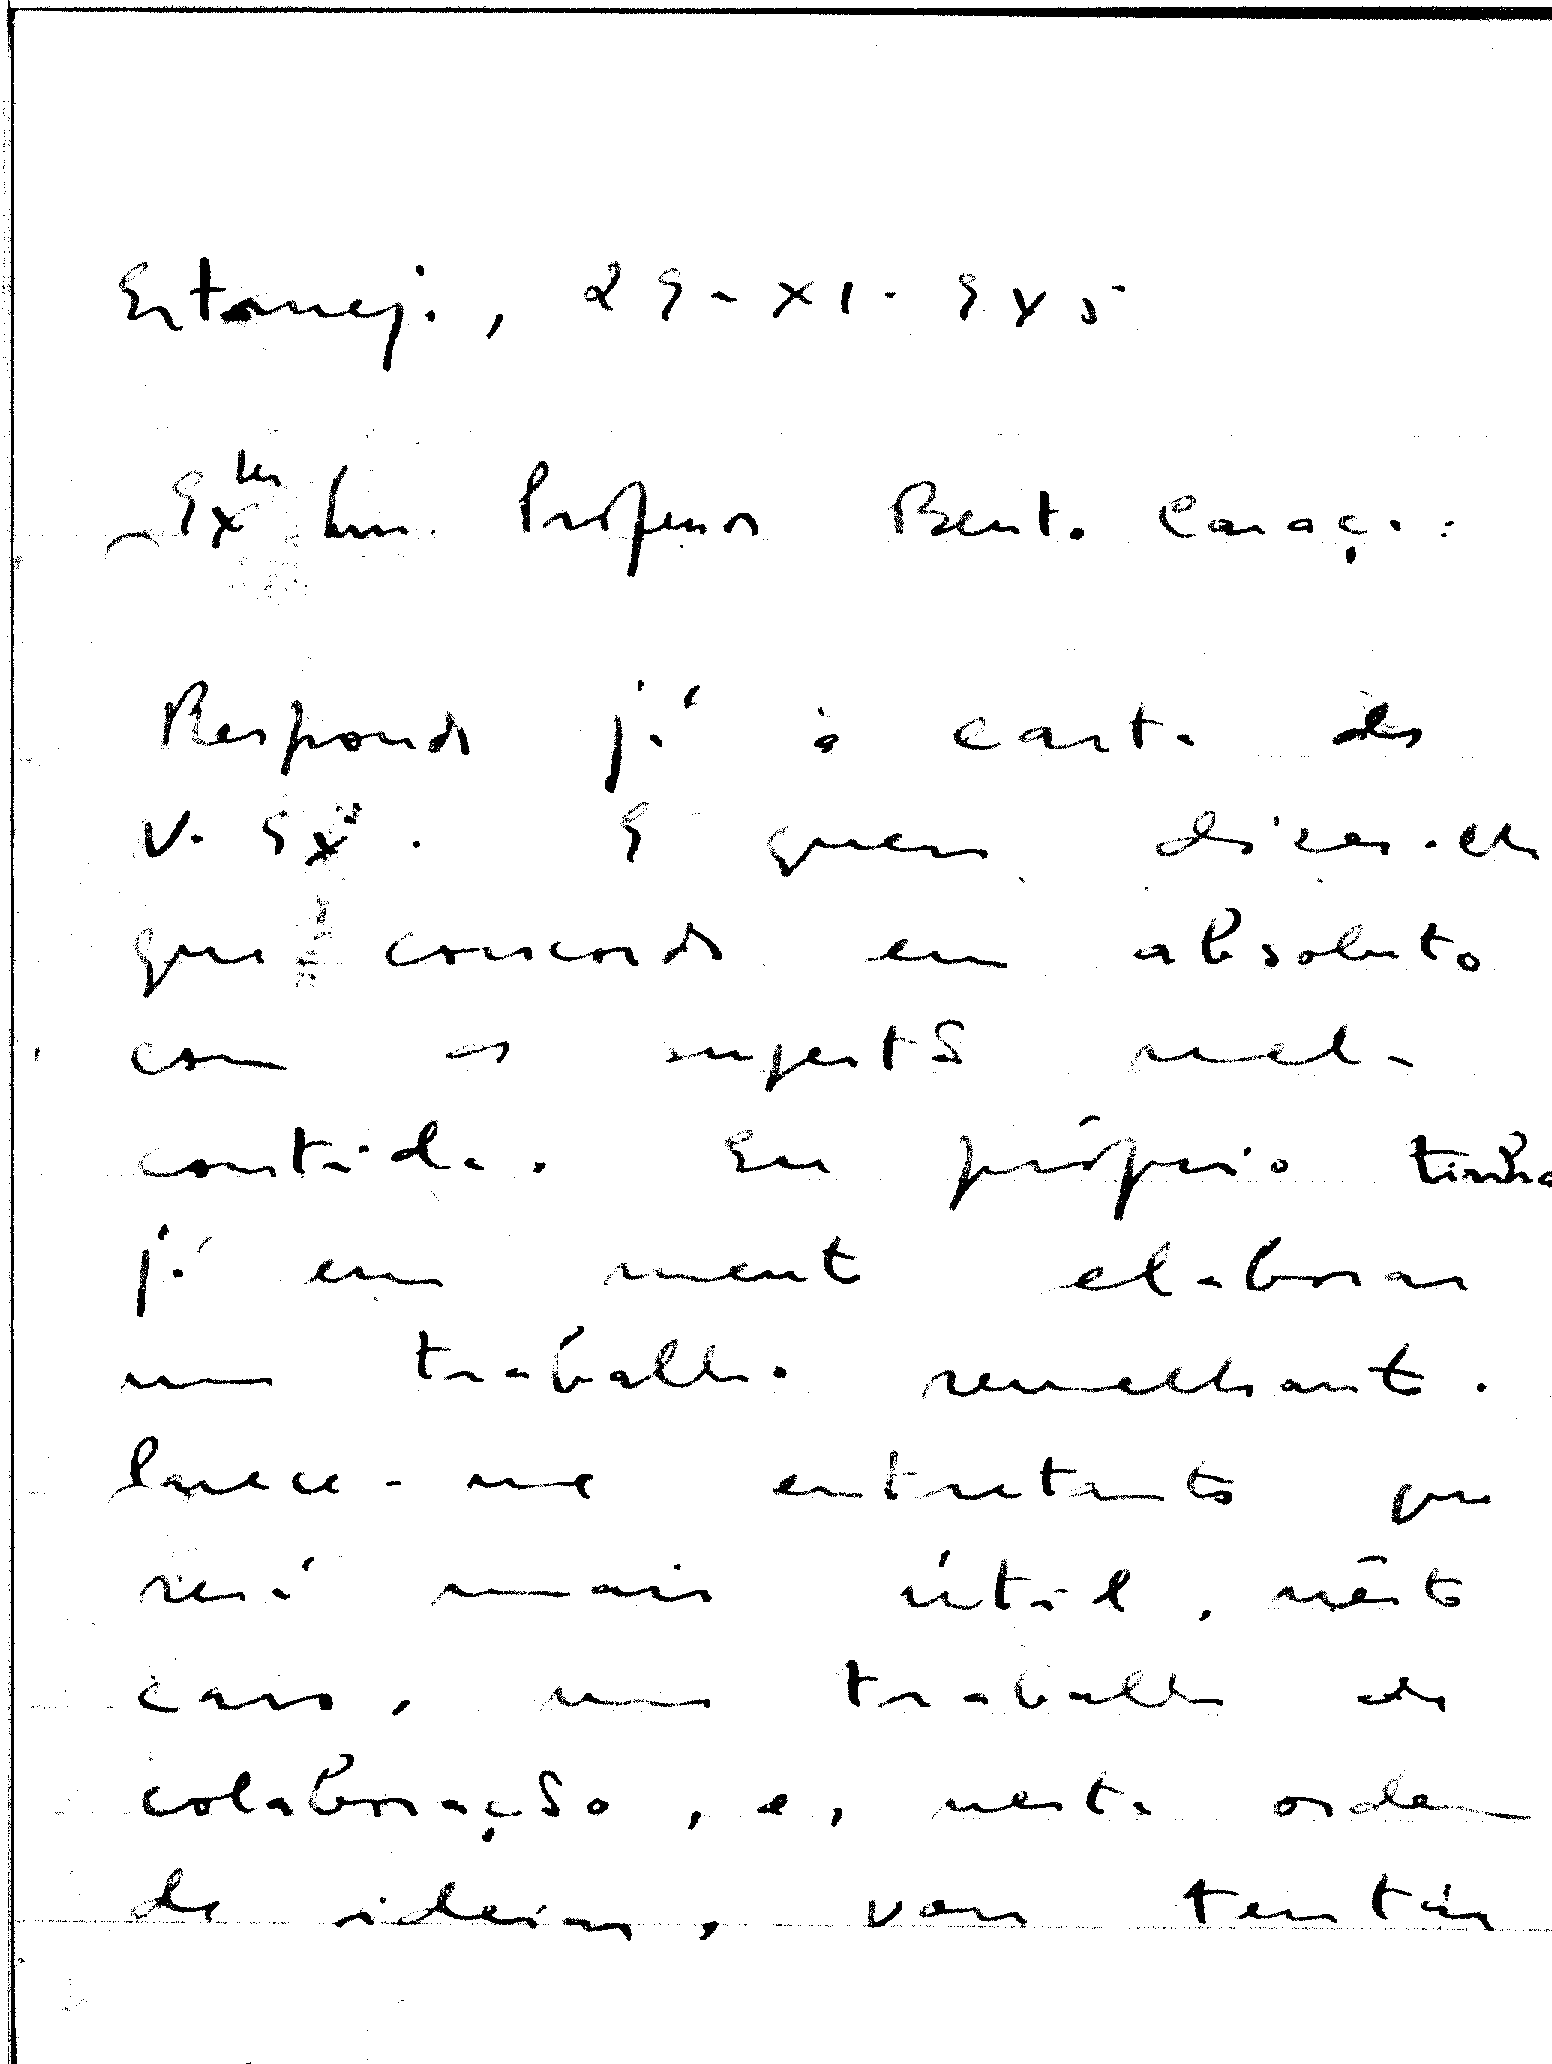 Estarreja, 29-XI-945
Exmo Snr. Professor Bento Caraça:
Respondo já à carta de
V. Exª. E quero dizer-lhe
que concordo em absoluto
com a sugestão nela
contida. Eu próprio tinha
já em mente elaborar
um trabalho semelhante.
Parece-me entretanto que
será mais útil, nêste
caso, um trabalho de
colaboração, e, nesta ordem
de ideias, vou tentar